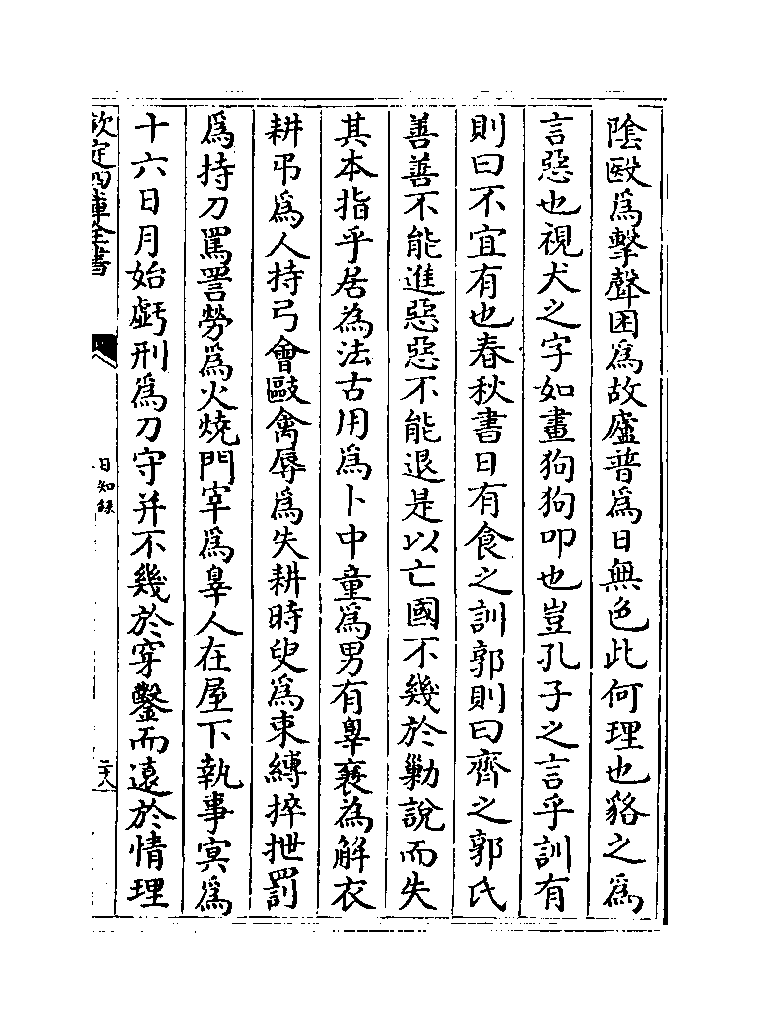 陰毆爲擊聲困爲故廬普爲日無色此何理也貉之爲
言惡也視犬之字如畫狗狗叩也豈孔子之言乎訓有
則曰不宜有也春秋書日有食之訓郭則曰齊之郭氏
善善不能進惡惡不能退是以亡國不幾於勦說而失
其本指乎居為法古用爲卜中童爲男有辠襄為解衣
耕弔爲人持弓會敺禽辱爲失耕時臾爲束縛捽抴罰
爲持刀罵詈勞爲火燒門宰爲辠人在屋下執事冥爲
十六日月始虧刑爲刀守井不幾於穿鑿而遠於情理
欽定四庫全書
日知錄
二十八